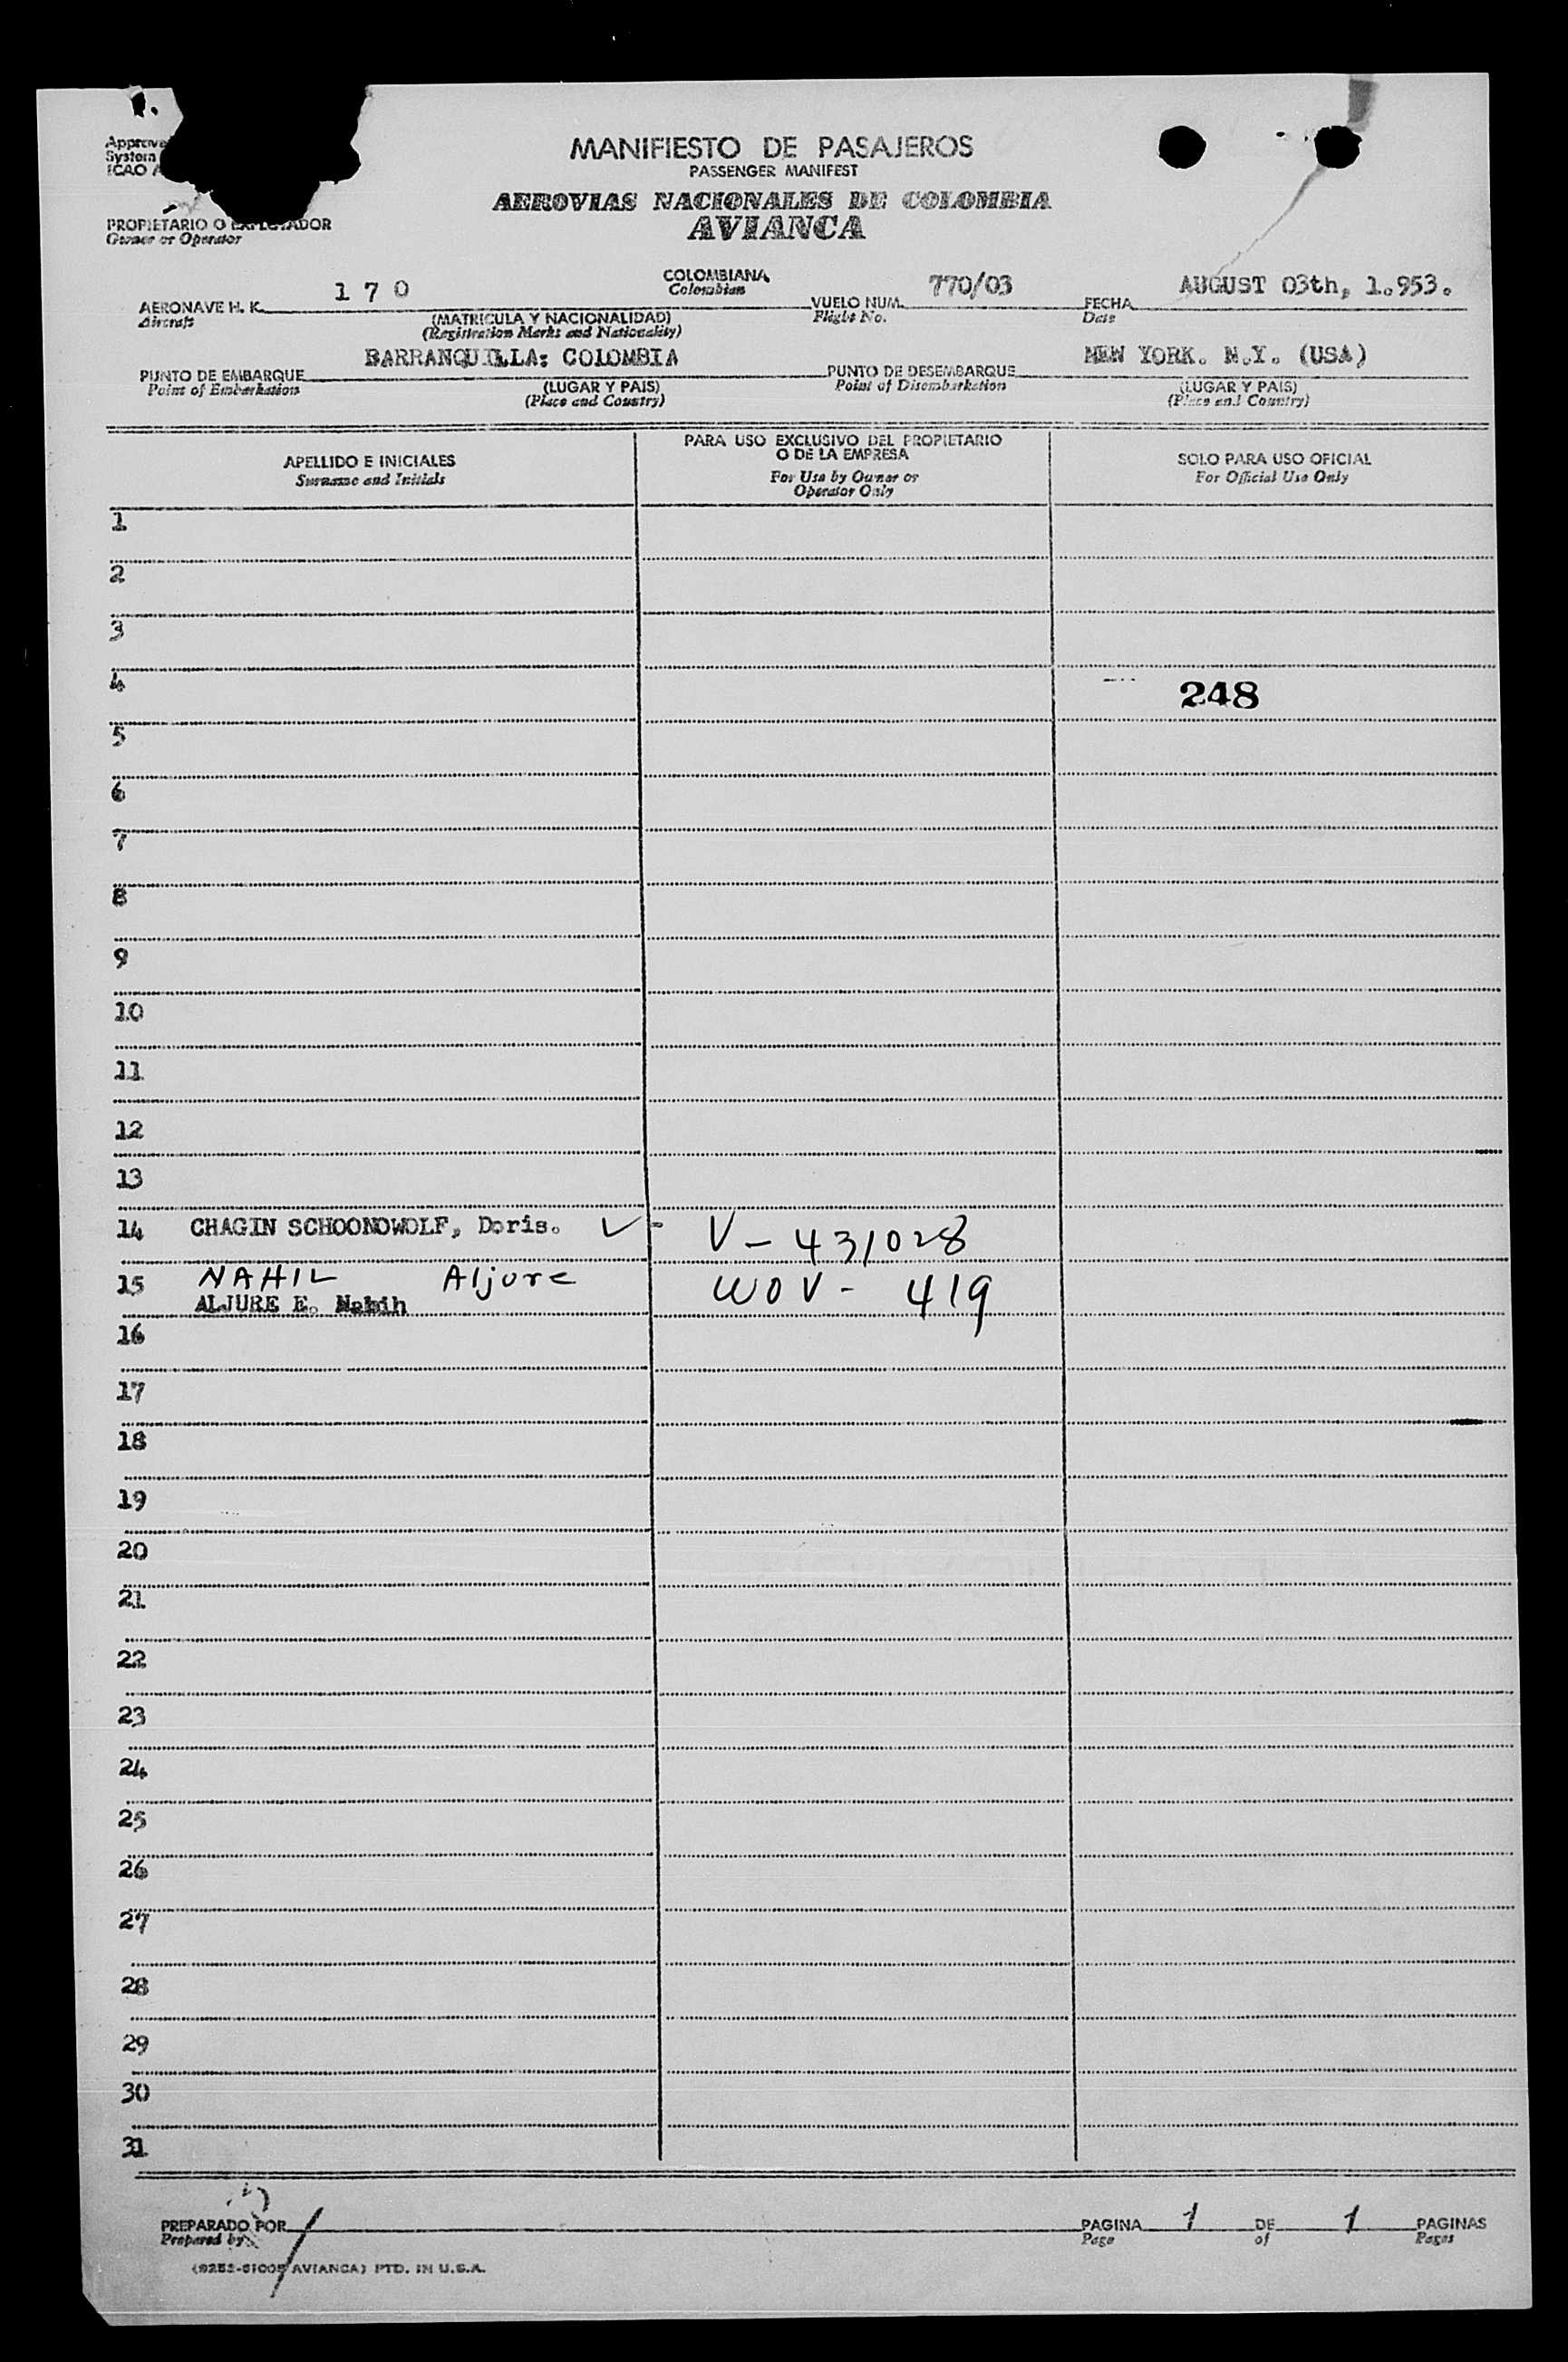 Approve
System
ICAO A
MANIFIESTO DE PASAJEROS
PASSENGER MANIFEST
AEROVIAS NACIONALES DE COLOMBIA
AVIANCA
PROPIETARIO O EXPLOTADOR
Owner or Operator
AERONAVE H. K. 170 COLOMBIANA VUELO NUM. 770/03 FECHA AUGUST 03th, 1.953.
Aircraft (MATRICULA Y NACIONALIDAD) Colombian Flight No. Date
(Registration Marks and Nationality)
PUNTO DE EMBARQUE BARRANQUILLA: COLOMBIA PUNTO DE DESEMBARQUE NEW YORK. N.Y. (USA)
Point of Embarkation (LUGAR Y PAIS) Point of Disembarkation (LUGAR Y PAIS)
(Place and Country) (Place and Country)
APELLIDO E INICIALES
Surname and Initials
PARA USO EXCLUSIVO DEL PROPIETARIO
O DE LA EMPRESA
For Use by Owner or
Operator Only
SOLO PARA USO OFICIAL
For Official Use Only
1
2
3
4 248
5
6
7
8
9
10
11
12
13
14 CHAGIN SCHOONOWOLF, Doris. V-431028
15 NAHIL Aljure WOV- 419
ALJURE E. Nabih
16
17
18
19
20
21
22
23
24
25
26
27
28
29
30
31
PREPARADO POR PAGINA 1 DE 1 PAGINAS
Prepared by Page of Pages
(9252-61005 AVIANCA) PTD. IN U.S.A.